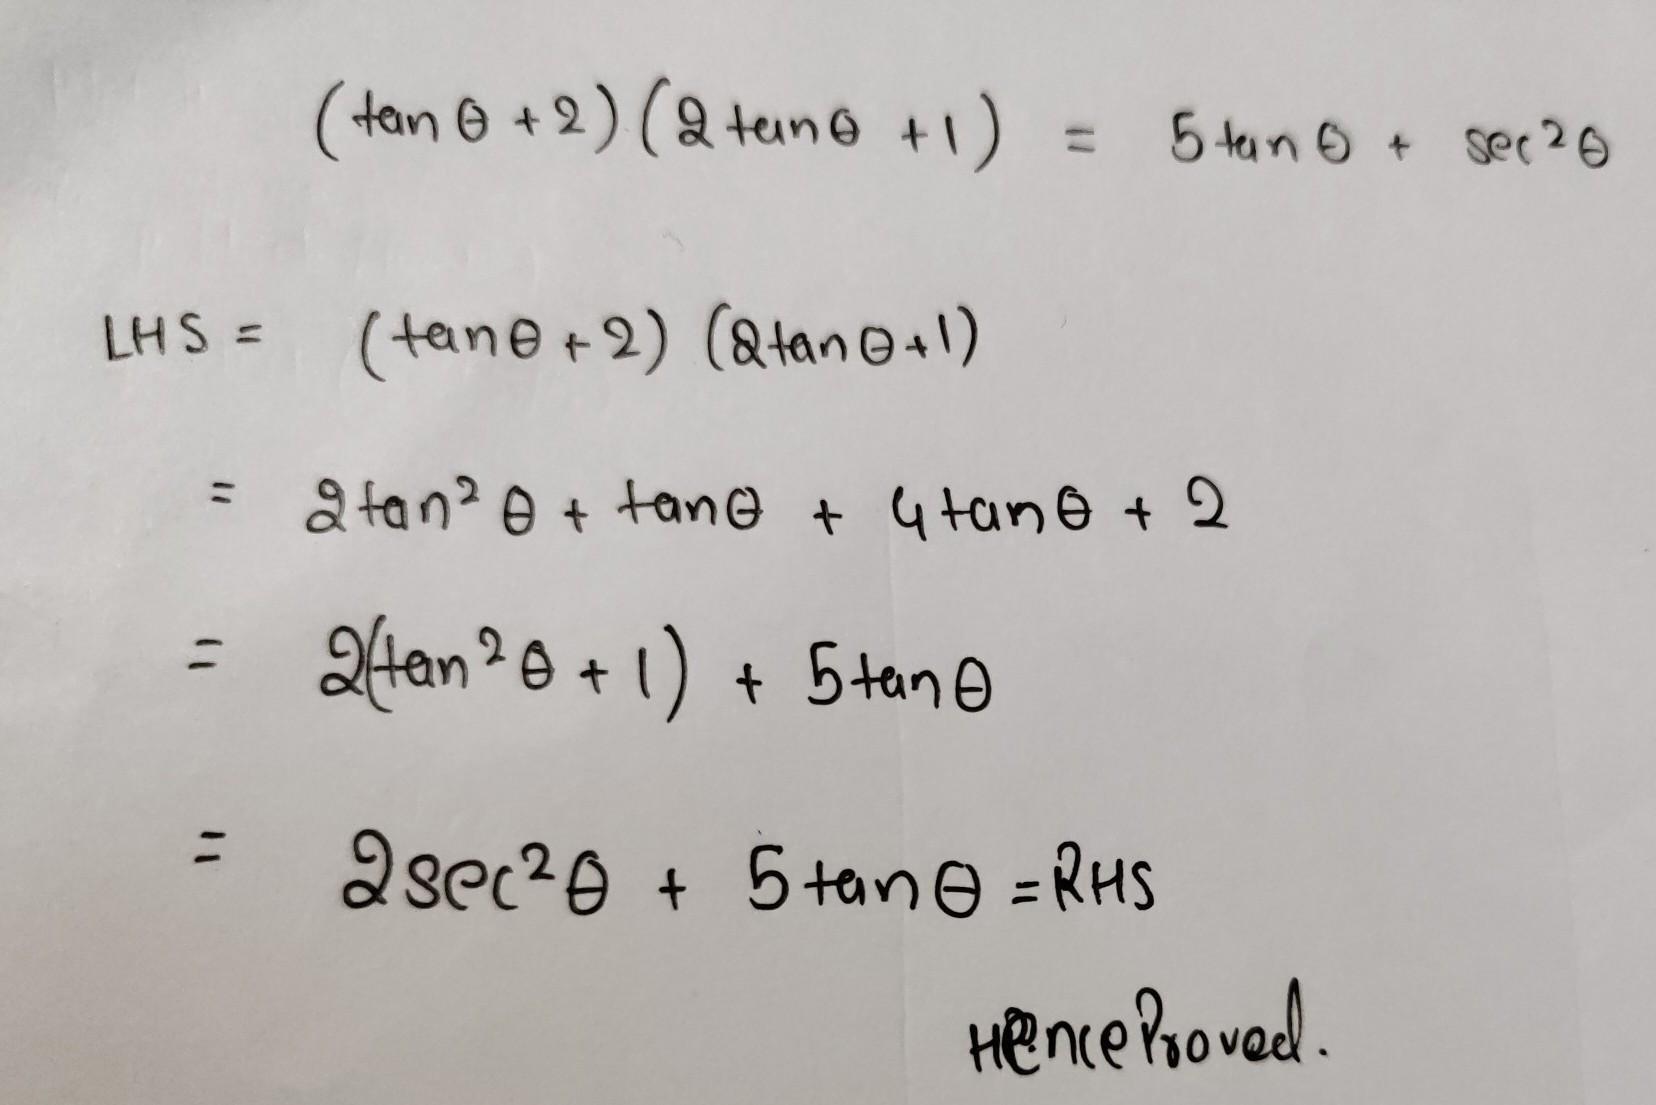 (tan θ + 2) (2 tan θ + 1) = 5 tan θ + sec² θ
LHS = (tan θ + 2) (2 tan θ + 1)
= 2 tan² θ + tan θ + 4 tan θ + 2
= 2(tan² θ + 1) + 5 tan θ
= 2 sec² θ + 5 tan θ = RHS
Hence Proved.